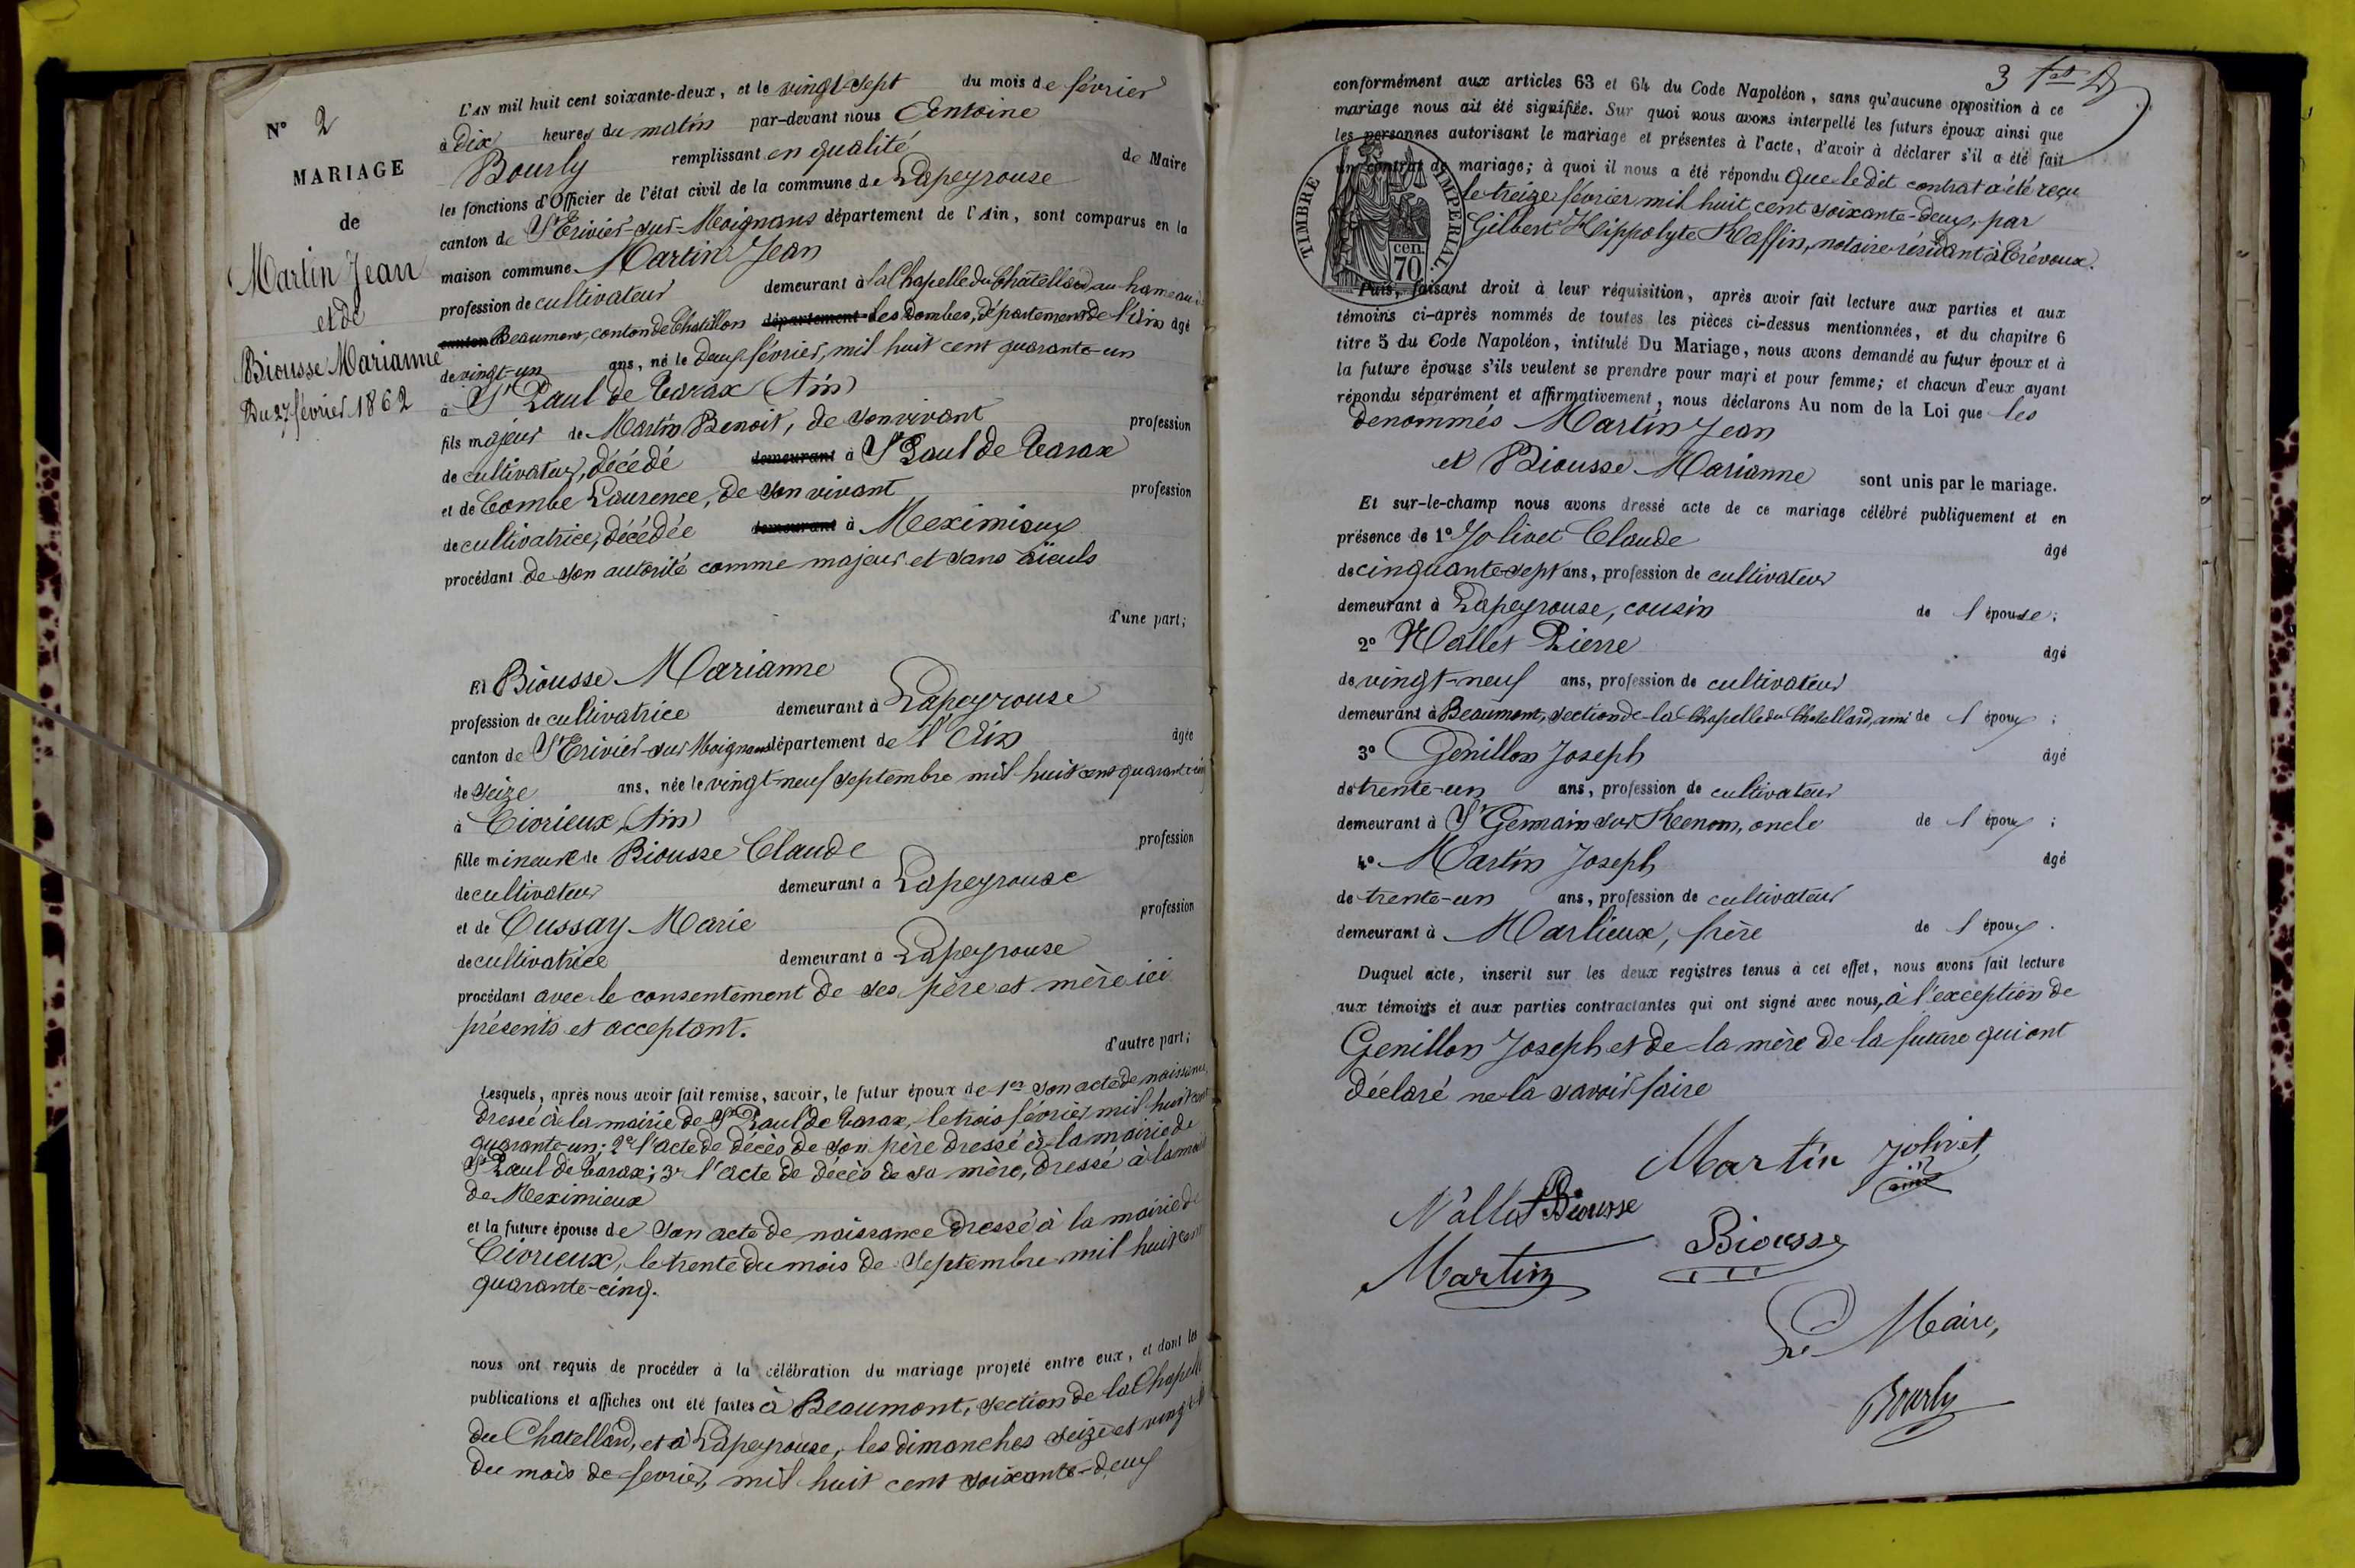 N° 2
MARIAGE
de
Martin Jean
et de
Biousse Marianne
Du 27 février 1862
L'AN mil huit cent soixante-deux, et le vingt-sept du mois de février
à Dix heures du matin par-devant nous Antoine
Bourly remplissant en qualité de Maire
les fonctions d'Officier de l'état civil de la commune de Lapeyrouse
canton de St Trivier-sur-Moignans département de l'Ain, sont comparus en la
maison commune Martin Jean
profession de cultivateur demeurant à la Chapelle du Châtellard, au hameau de
canton Beaumont, canton de Chatillon département Les Dombes, département de l'Ain âgé
de vingt-un ans, né le deux février, mil huit cent quarante-un
à St Paul de Varax (Ain)
fils majeur de Martin Benoit, de son vivant profession
de cultivateur, décédé demeurant à St Paul de Varax
et de Combe Laurence, de son vivant profession
de cultivatrice, décédée demeurant à Meximieux
procédant de son autorité comme majeur et sans aïeuls
d'une part;
Et Biousse Marianne
profession de cultivatrice demeurant à Lapeyrouse
canton de St Trivier-sur Moignans département de l'Ain âgée
de seize ans, née le vingt-neuf septembre mil huit cent quarante-cinq
à Civrieux, (Ain)
fille mineure de Biousse Claude profession
de cultivateur demeurant à Lapeyrouse
et de Cussay Marie profession
de cultivatrice demeurant à Lapeyrouse
procédant avec le consentement de ses père et mère ici
présents et acceptant.
d'autre part;
Lesquels, après nous avoir fait remise, savoir, le futur époux de 1er son acte de naissance,
dressé à la mairie de St Paul de Varax, le trois février mil huit cent
quarante-un; 2° l'acte de décès de son père dressé à la mairie de
St Paul de Varax; 3° l'acte de décès de sa mère, dressé à la mairie
de Meximieux
et la future épouse de son acte de naissance dressé à la mairie de
Civrieux, le trente du mois de Septembre mil huit cent
quarante-cinq.
nous ont requis de procéder à la célébration du mariage projeté entre eux, et dont les
publications et affiches ont été faites à Beaumont, section de la Chapelle
du Chatellard, et à Lapeyrouse, les dimanches seize et vingt
du mois de février, mil huit cent soixante-deux
3
conformément aux articles 63 et 64 du Code Napoléon, sans qu'aucune opposition à ce
mariage nous ait été signifiée. Sur quoi nous avons interpellé les futurs époux ainsi que
les personnes autorisant le mariage et présentes à l'acte, d'avoir à déclarer s'il a été fait
un contrat de mariage; à quoi il nous a été répondu Que le dit contrat a été reçu
le treize février mil huit cent soixante-deux, par
Gilbert Hippolyte Raffin, notaire résidant à Trévoux.
TIMBRE IMPERIAL.
cen.
70
Puis, faisant droit à leur réquisition, après avoir fait lecture aux parties et aux
témoins ci-après nommés de toutes les pièces ci-dessus mentionnées, et du chapitre 6
titre 5 du Code Napoléon, intitulé Du Mariage, nous avons demandé au futur époux et à
la future épouse s'ils veulent se prendre pour mari et pour femme; et chacun d'eux ayant
répondu séparément et affirmativement, nous déclarons Au nom de la Loi que les
denommés Martin Jean
et Biousse Marianne sont unis par le mariage.
Et sur-le-champ nous avons dressé acte de ce mariage célébré publiquement et en
présence de 1° Jolivet Claude âgé
de cinquante-sept ans, profession de cultivateur
demeurant à Lapeyrouse, cousin de l'épouse;
2° Nallet Pierre âgé
de vingt-neuf ans, profession de cultivateur
demeurant à Beaumont, section de la Chapelle du Chatellard, ami de l'époux;
3° Genillon Joseph âgé
de trente-un ans, profession de cultivateur
demeurant à St Germain sur Renom, oncle de l'époux;
4° Martin Joseph âgé
de trente-un ans, profession de cultivateur
demeurant à Marlieux, frère de l'époux.
Duquel acte, inscrit sur les deux registres tenus à cet effet, nous avons fait lecture
aux témoins et aux parties contractantes qui ont signé avec nous, à l'exception de
Genillon Joseph et de la mère de la future qui ont
déclaré ne la savoir faire
Martin Jolivet
Nallet Biousse
Martin Biousse
Le Maire,
Bourly